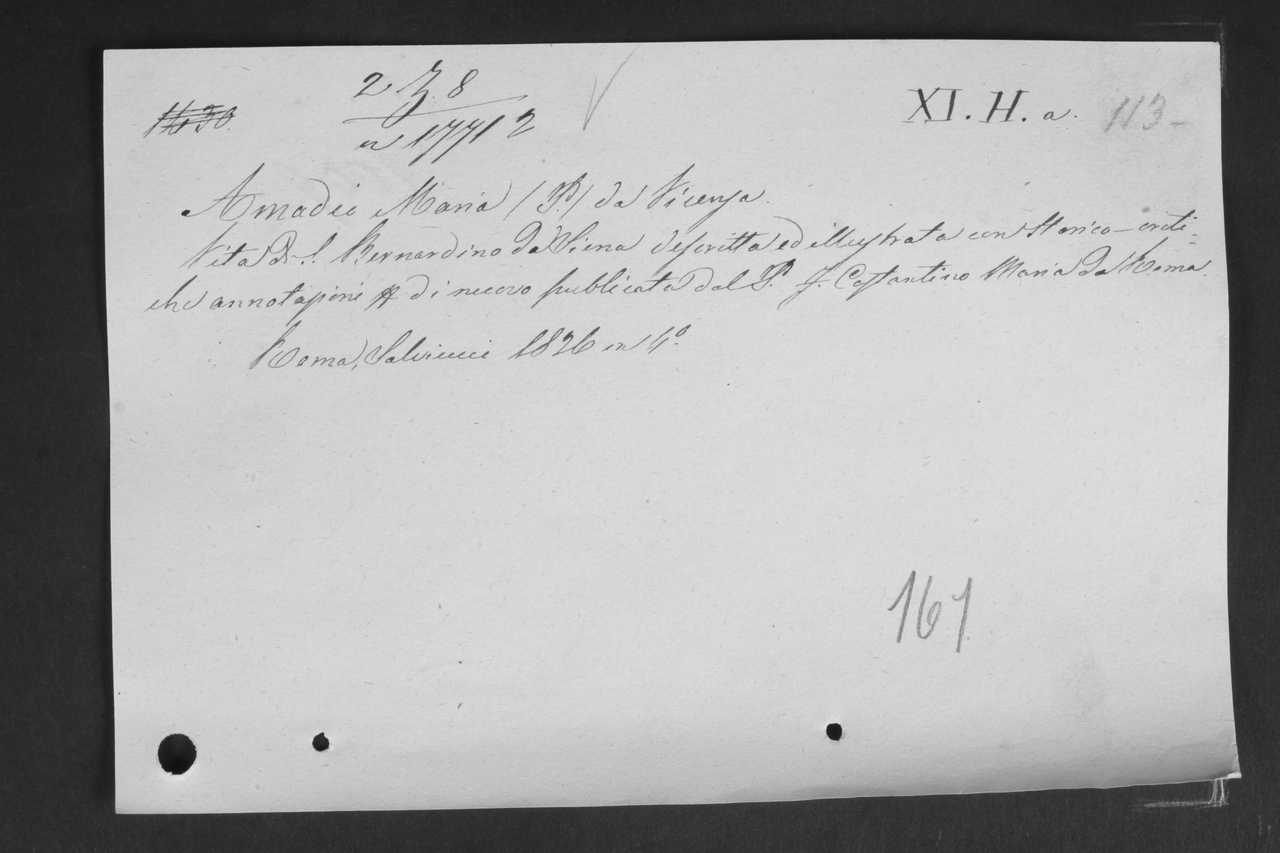 2 Z. 8
1630.
n 1771 2
XI. H. a. 113-
Amadio Maria (P.) da Vicenza.
Vita di S. Bernardino da Siena descritta ed illustrata con storico-criti=
che annotazioni di nuovo publicata dal P. F. Costantino Maria da Roma.
Roma, Salviucci 1826 in 4º.
161